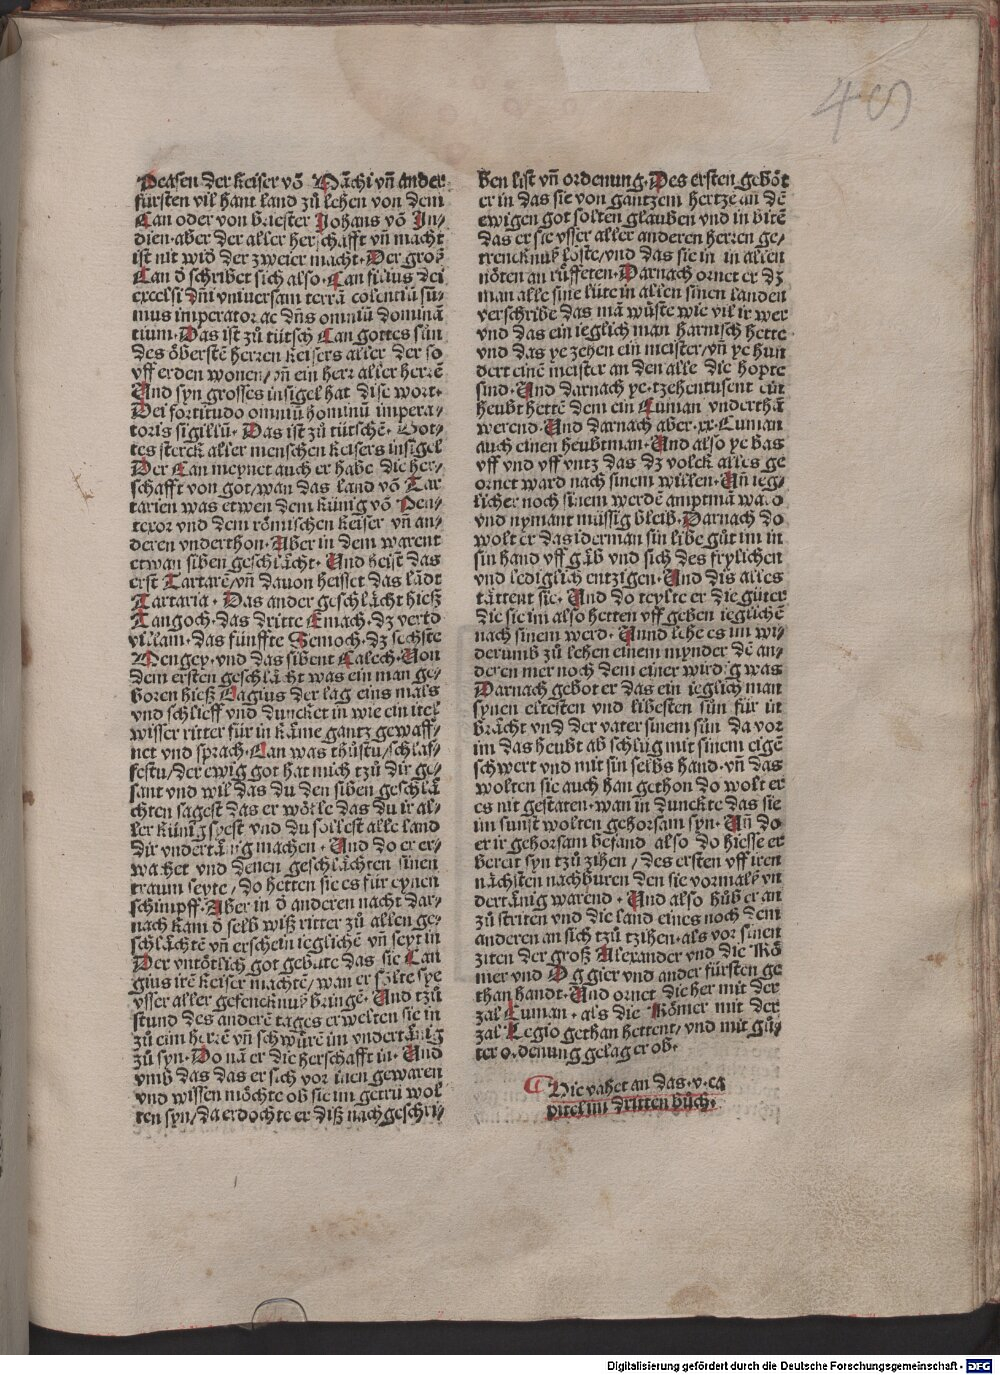 49
Persen der keiser võ Mãchi vñ ander
fürsten vil hant land zů lehen von dem
Can oder von briester Johans võ In/
dien·aber der aller herschafft vñ macht
ist nit wid̾ der zweier macht·Der groß
Can d̾ schribet sich also·Can filius dei
excelsi dñi vniuersam terrã colentiũ sũ/
mus imperator ac dñs omniũ dominã
tium·Das ist zů tütsch Can gottes sün
des öberstẽ herren keisers aller der so
vff erden wonen/vñ ein herr aller herrẽ
Und syn grosses insigel hat dise wort·
Dei fortitudo omniũ hominũ impera/
toris sigillũ· Das ist zů tütschẽ· Got/
tes sterck aller menschen keisers insigel
Der Can meynet auch er habe die her/
schafft von got/wan das land võ Tar
tarien was etwen dem künig võ Pen/
texor vnd dem römischen keiser vñ an/
deren vnderthon·Aber in dem warent
etwan siben geschlächt· Und heist das
erst Tartarẽ/vñ dauon heisset das lãdt
Tartaria· Das ander geschlächt hieß
Tangoch·das dritte Emach·dz vierd
villam·das fünffte Semoch·dz sechste
Mengey·vnd das sibent Calech·Von
dem ersten geschlächt was ein man ge/
boren hieß Cagius der lag eins mals
vnd schlieff vnd duncket in wie ein itel
wisser ritter für in käme gantz gewaff/
net vnd sprach·Can was thůstu/schlaf/
festu/der ewig got hat mich tzů dir ge/
sant vnd wil das du den siben geschlä
chten sagest das er wölle das du ir al/
ler künig syest vnd du sollest alle land
dir vndertänig machen· Und do er er/
wachet vnd denen geschlächten sinen
traum seyte/do hetten sie es für eynen
schimpff·Aber in d̾ anderen nacht dar/
nach kam d̾ selb wiß ritter zů allen ge/
schlächtẽ vñ erschein ieglichẽ vñ seyt in
Der vntötlich got gebute das sie Can
gius irẽ keiser machtẽ/wan er solte sye
vsser aller gefencknuß bringẽ· Und tzů
stund des anderẽ tages erwelten sie in
zů eim herrẽ vñ schwůrẽ im vndertänig
zů syn·Do nã er die herschafft in· Und
vmb das das er sich vor inen gewaren
vnd wissen möchte ob sie im getrü wol
ten syn/da erdochte er diß nachgeschri/
ben list vñ ordenung·Des ersten geböt
er in das sie von gantzem hertze an dẽ
ewigen got solten glauben vnd in bitẽ
das er sie vsser aller anderen herren ge/
trencknuß löste/vnd das sie in in allen
nöten an růffeten·Darnach ornet er dz
man alle sine lüte in allen sinen landen
verschribe das mã wüste wie vil ir wer
vnd das ein ieglich man harnisch hette
vnd das ye zehen ein meister/vñ ye hun
dert einẽ meister an den alle die hopte
sind·Und darnach ye·tzehentusent ein
heubt hettẽ dem ein Cuman vnderthã
werend·Und darnach aber·xx·Cuman
auch einen heubtman·Und also ye bas
vff vnd vff vntz das dz volck alles ge
ornet ward nach sinem willen·Uñ ieg/
licher noch sinem werdẽ amptmã ward
vnd nymant müssig bleib·Darnach do
wolt er das iderman sin libe gůt im in
sin hand vff gäb vnd sich des frylichen
vnd lediglich entzigen·Und dis alles
tättent sie·Und do teylte er die güter
die sie im also hetten vff geben ieglichẽ
nach sinem werd·Unnd lehe es im wi/
derumb zů lehen einem mynder dẽ an/
deren mer noch dem einer wirdig was
Darnach gebot er das ein ieglich man
synen eltesten vnd libesten sün für in
brächt vnd der vater sinem sün da vor
im das heubt ab schlüg mit sinem eigẽ
schwert vnd mit sin selbs hand·vñ das
wolten sie auch han gethon do wolt er
es nit gestaten·wan in dunckte das sie
im sunst wolten gehorsam syn·Uñ do
er ir gehorsam befand also do hiesse er
bereit syn tzů zihen/des ersten vff iren
nächsten nachburen den sie vormalß vn
dertänig warend·Und also hůb er an
zů striten vnd die land eines noch dem
anderen an sich tzů tzihen·als vor sinen
ziten der groß Alexander vnd die Rö
mer vnd Oggier vnd ander fürsten ge
than handt·Und ornet die her mit der
zal Cuman·als die Römer mit der
zal Legio gethan hettent/vnd mit gů/
ter ordenung gelag er ob·
Hie vahet an das·v·ca
pitel im dritten bůch·
Digitalisierung gefördert durch die Deutsche Forschungsgemeinschaft - DFG